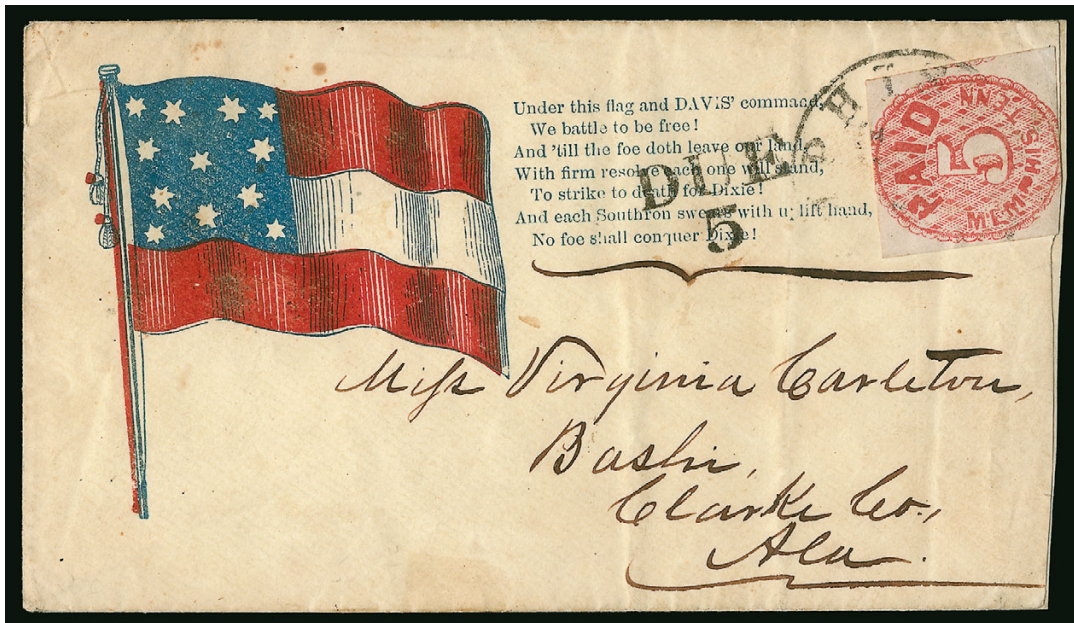 Under this flag and DAVIS' command,
We battle to be free!
And 'till the foe doth leave our land,
With firm resolve each one will stand,
To strike to death for Dixie!
And each Southron swears with uplift hand,
No foe shall conquer Dixie!
DUE
5
PAID
5
MEMPHIS, TENN
Miſs Virginia Carleton,
Bashi,
Clarke Co.,
Ala.